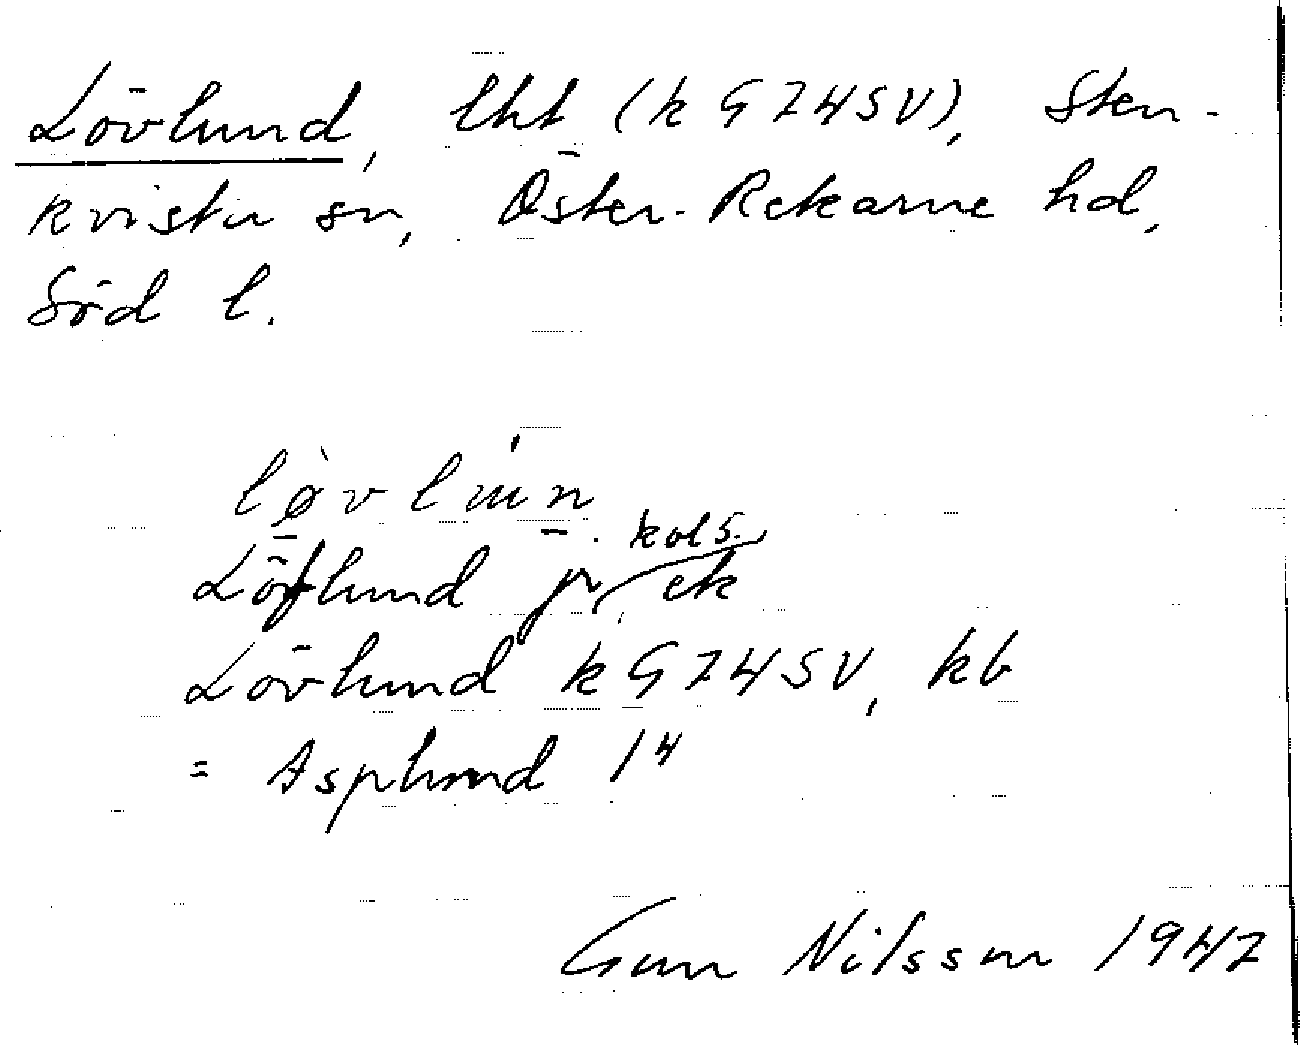 Lövlund, lht (k G74SV), Sten-
kvista sn, Öster-Rekarne hd,
Söd l.
Löflund jr
Lövlund k G74SV, kb
= Asplund 1⁴
Gun Nilsson 1947